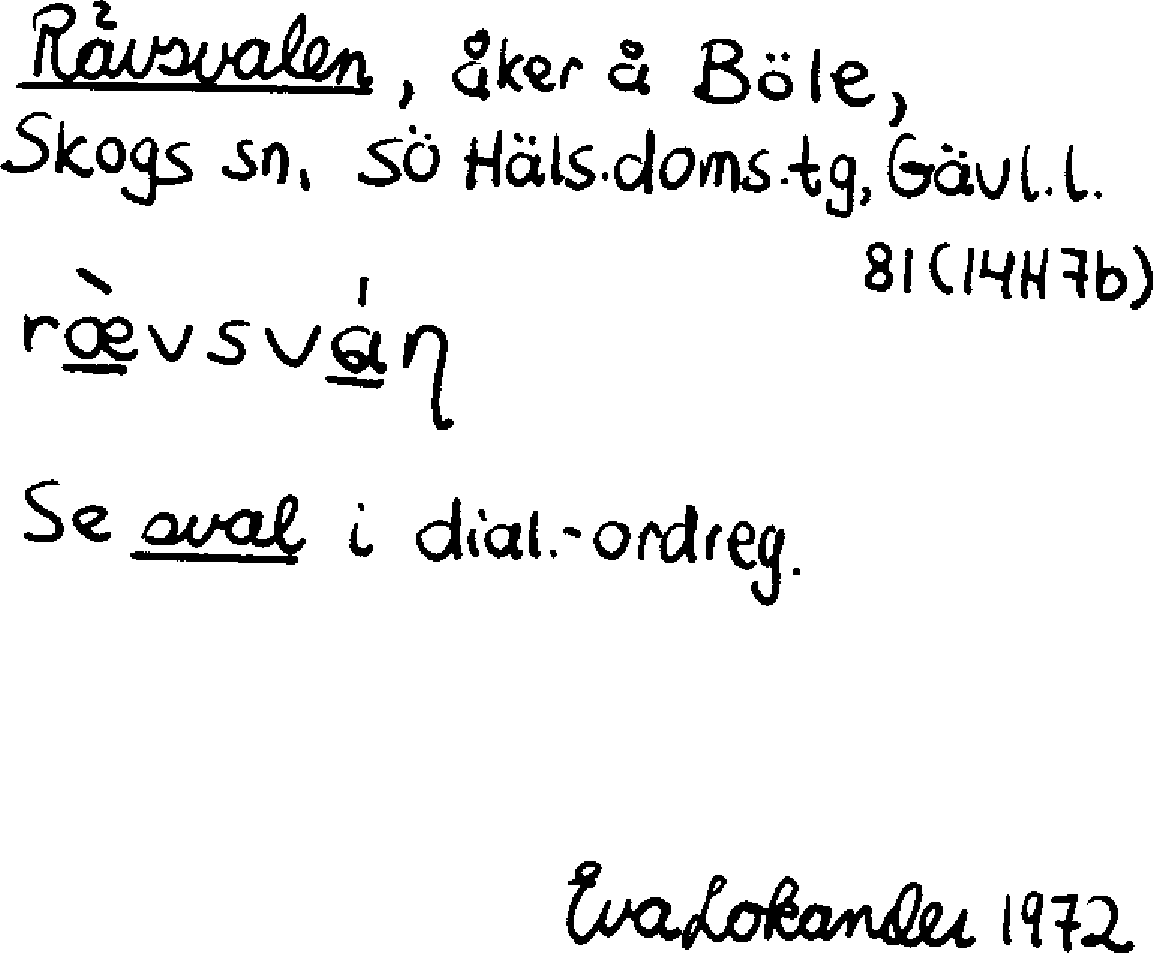 Rävsvalen, åker å Böle,
Skogs sn, SÖ Häls.doms.tg, Gävl.l.
81 (14H 7b)
ræ̀vsván
Se sval i dial.-ordreg.
Eva Lokander 1972